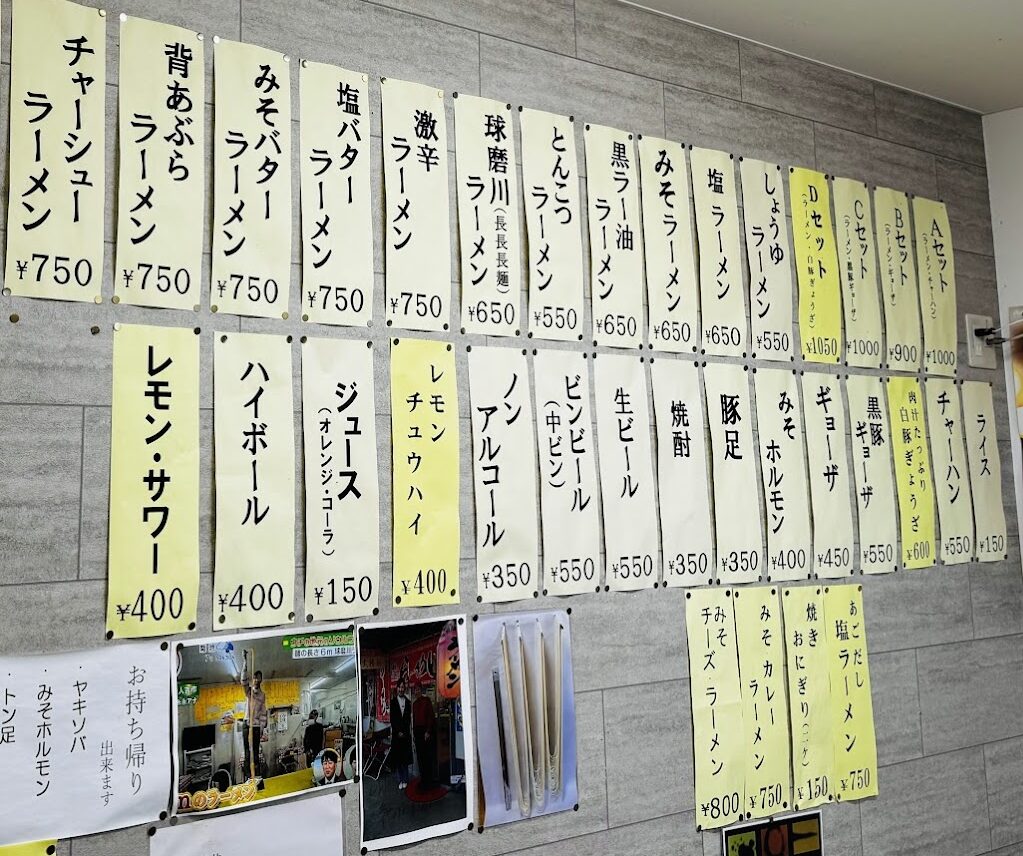 Aセット
(ラーメン・チャーハン)
¥1000
Bセット
(ラーメン・ギョーザ)
¥900
Cセット
(ラーメン・黒豚ギョーザ)
¥1000
Dセット
(ラーメン・白豚ぎょうざ)
¥1050
しょうゆ
ラーメン
¥550
塩ラーメン
¥650
みそラーメン
¥650
黒ラー油
ラーメン
¥650
とんこつ
ラーメン
¥550
球磨川(長長長麺)
ラーメン
¥650
激辛
ラーメン
¥750
塩バター
ラーメン
¥750
みそバター
ラーメン
¥750
背あぶら
ラーメン
¥750
チャーシュー
ラーメン
¥750
ライス
¥150
チャーハン
¥550
肉汁たっぷり
白豚ぎょうざ
¥600
黒豚
ギョーザ
¥550
ギョーザ
¥450
みそ
ホルモン
¥400
豚足
¥350
焼酎
¥350
生ビール
¥550
ビンビール
(中ビン)
¥550
ノン
アルコール
¥350
レモン
チュウハイ
¥400
ジュース
(オレンジ・コーラ)
¥150
ハイボール
¥400
レモン・サワー
¥400
あごだし
塩ラーメン
¥750
焼き
おにぎり(二ケ)
¥150
みそカレー
ラーメン
¥750
みそ
チーズ・ラーメン
¥800
お持ち帰り
出来ます
ヤキソバ
・みそホルモン
・トン足
麺の長さ6m 球磨川
のラーメン